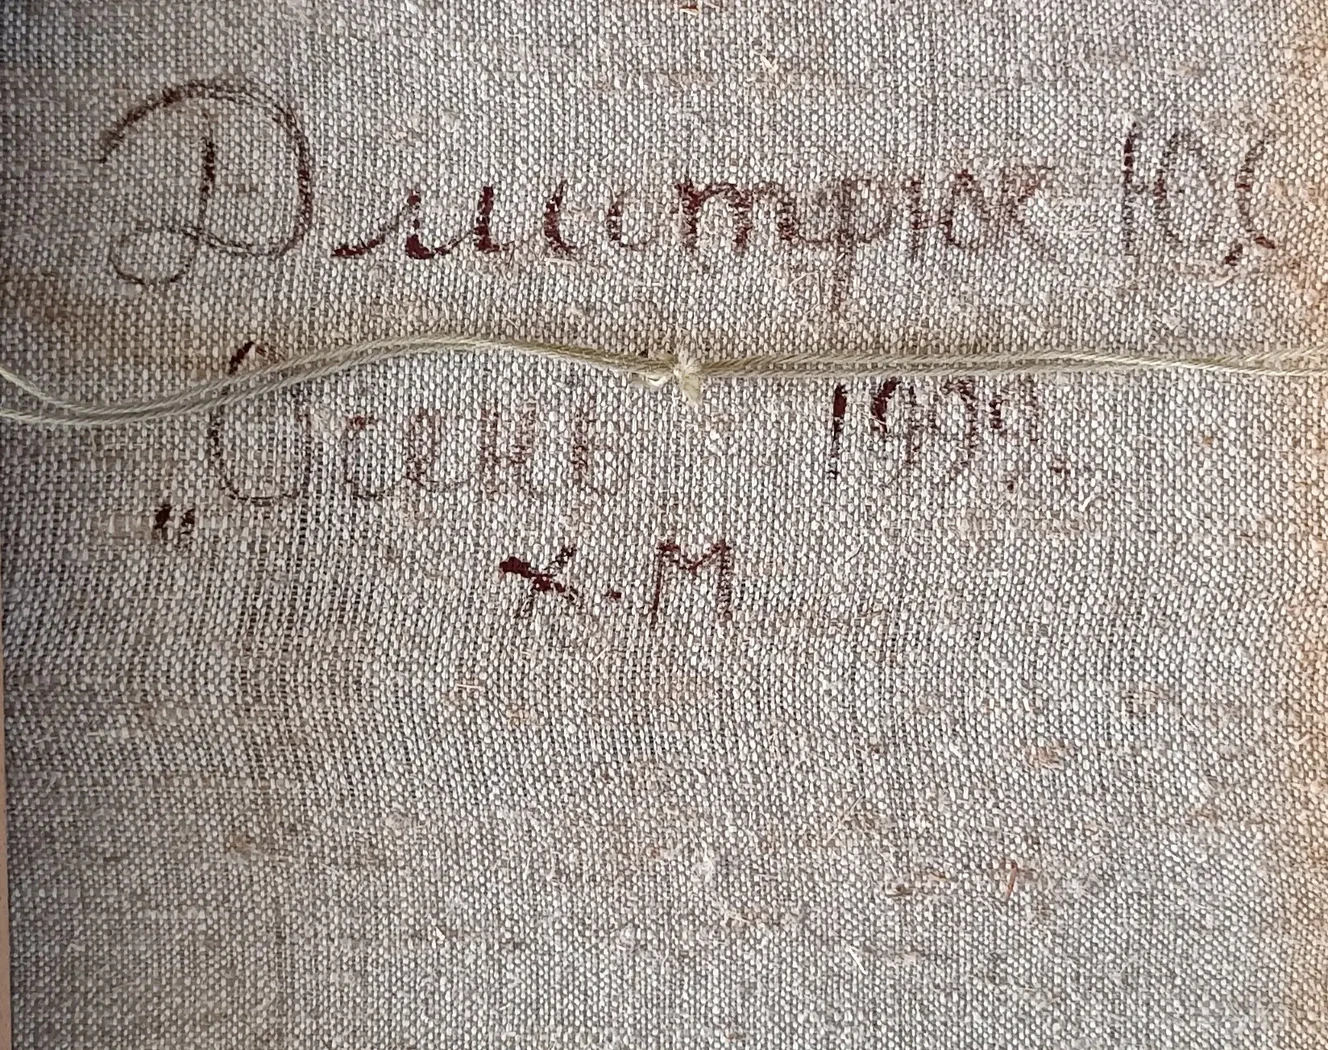 Дмитрюк Ю.
"Осень 1991.
х.м